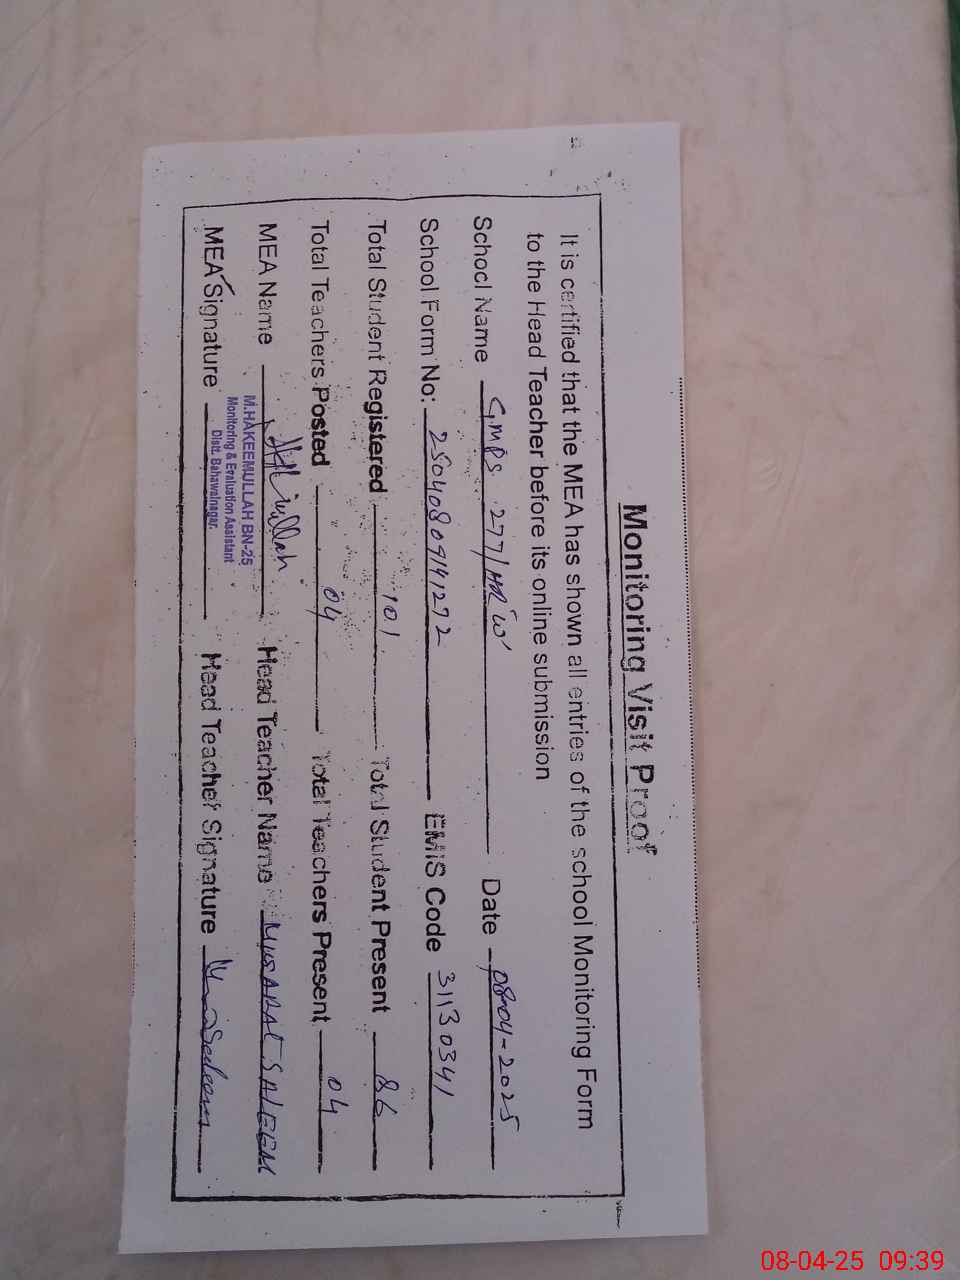 Monitoring Visit Proof
It is certified that the MEA has shown all entries of the school Monitoring Form
to the Head Teacher before its online submission
School Name GMPS 277/HR'W' Date 08-04-2025
School Form No: 25040809141272 EMIS Code 31130341
Total Student Registered 101 Total Student Present 86
Total Teachers Posted 04 Total Teachers Present 04
MEA Name Head Teacher Name MUSARAT SALEEM
M.HAKEEMULLAH BN-25
Monitoring & Evaluation Assistant
Distt. Bahawalnagar.
MEA Signature Head Teacher Signature
08-04-25 09:39